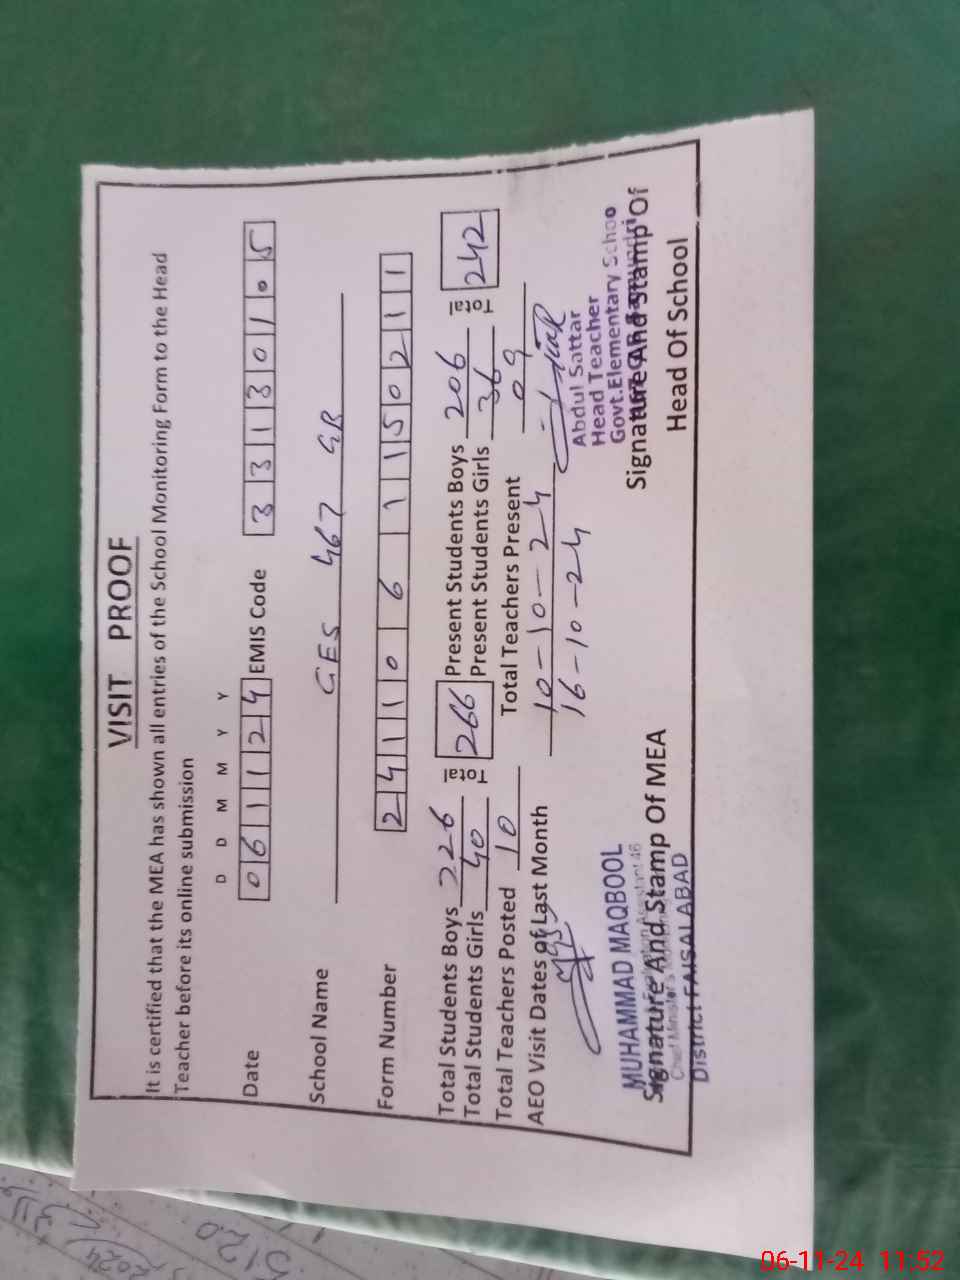 VISIT PROOF
It is certified that the MEA has shown all entries of the School Monitoring Form to the Head
Teacher before its online submission
D D M M Y Y
Date 061124 EMIS Code 33130105
School Name GES 467 GB
Form Number 24110611150211
Total Students Boys 226 Total 266 Present Students Boys 206 Total 242
Total Students Girls 40 Present Students Girls 36
Total Teachers Posted 10 Total Teachers Present 09
AEO Visit Dates of Last Month 10-10-24
16-10-24
MUHAMMAD MAQBOOL
Signature And Stamp Of MEA
District FAISALABAD
Abdul Sattar
Head Teacher
Govt.Elementary Schoo
Signature And Stamp Of
Head Of School
2024
5120
06-11-24 11:52